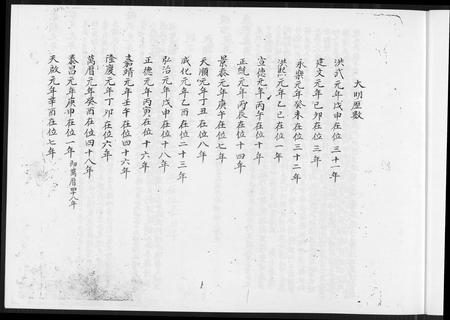 大明歷數
洪武元年戊申在位三十一年
建文元年己卯在位三年
永樂元年癸未在位三十二年
洪熙元年乙巳在位一年
宣德元年丙午在位十年
正統元年丙辰在位十四年
景泰元年庚午在位七年
天順元年丁丑在位八年
成化元年乙酉在位二十三年
弘治元年戊申在位十八年
正德元年丙寅在位十六年
嘉靖元年壬午在位四十六年
隆慶元年丁卯在位六年
萬曆元年癸酉在位四十八年
泰昌元年庚申在位一年 即萬曆四十八年
天啟元年辛酉在位七年